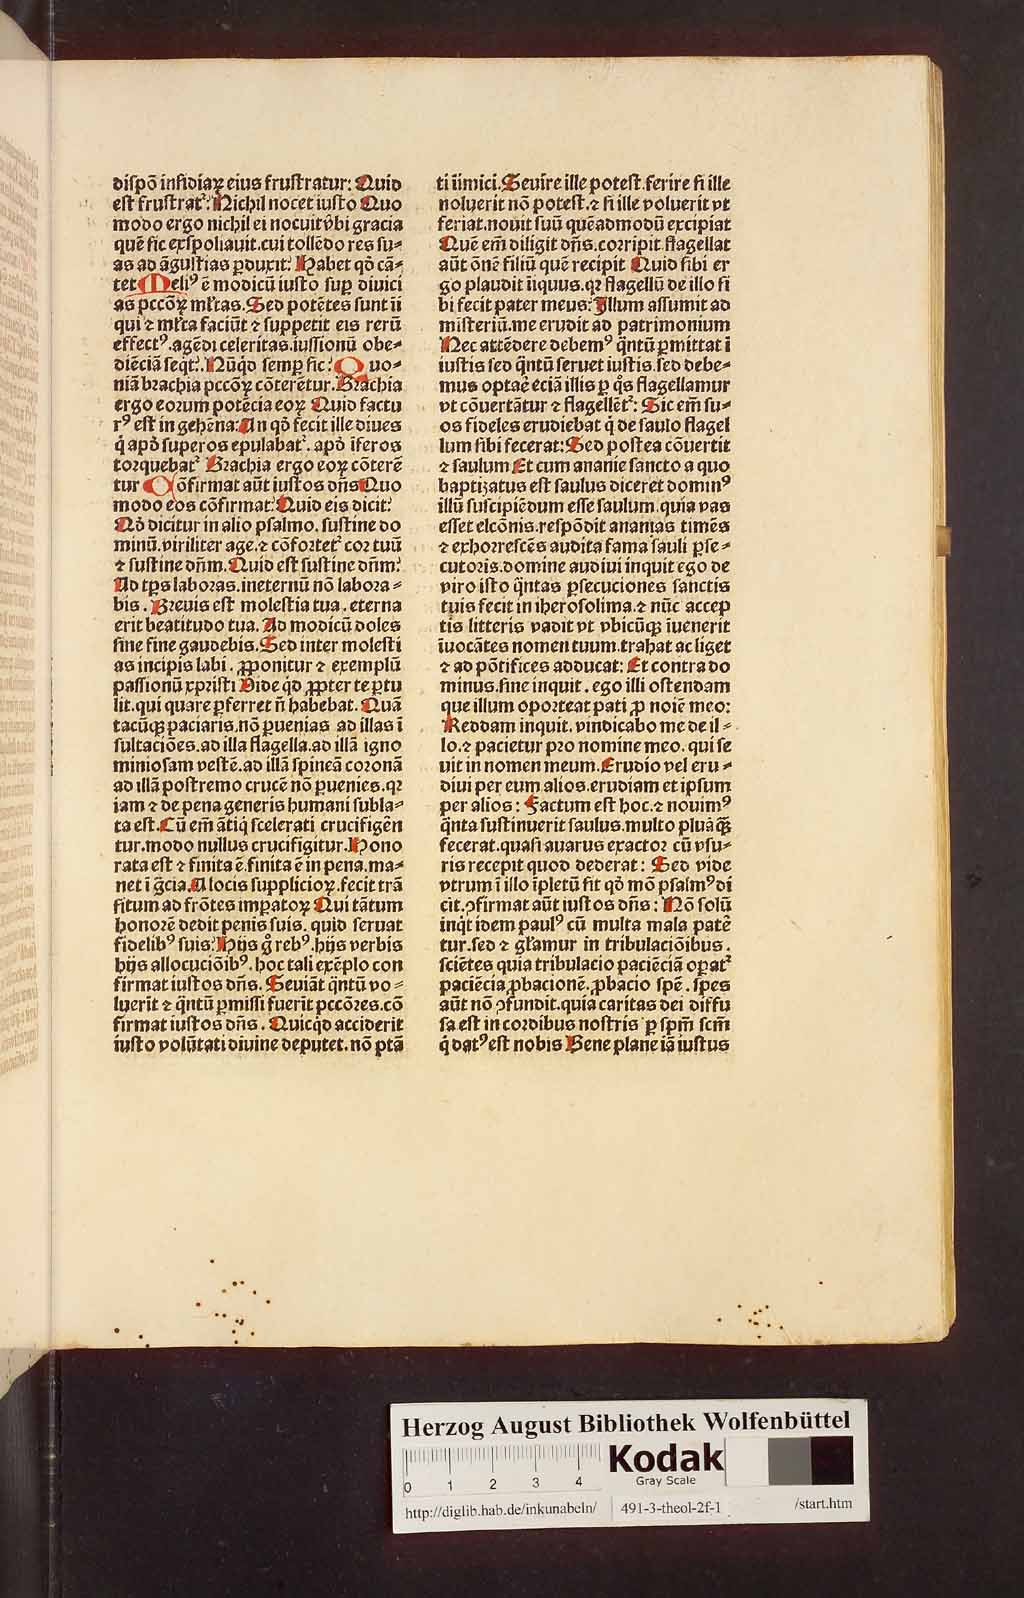 dispō insidiaꝝ eius frustratur: Quid
est frustratᷣ: Nichil nocet iusto Quo
modo ergo nichil ei nocuit vbi gracia
quē sic exspoliauit. cui tollēdo res su⸗
as ad āgustias ꝑduxit: Habet qd̓ cā⸗
tet Meliꝰ ē modicū iusto suꝑ diuici
as pccōꝝ ml̓tas. Sed potētes sunt ii
qui ⁊ ml̓ta faciūt ⁊ suppetit eis rerū
effectꝰ. agēdi celeritas. iussionū obe⸗
diēcia seqtᷣ:. Nūqd̓ semꝑ sic: Quo⸗
niā brachia pccōꝝ cōterētur. Brachia
ergo eorum potēcia eoꝝ Quid factu
rꝰ est in gehēna: An qd̓ fecit ille diues
q̇ apd̓ superos epulabatᷣ. apd̓ īferos
torquebatᷣ Brachia ergo eoꝝ cōterē
tur Cōfirmat aūt iustos dn̄s Quo
modo eos cōfirmat: Quid eis dicit:
Qd̓ dicitur in alio psalmo. sustine do
minū. viriliter age. ⁊ cōfortetᷣ cor tuū
⁊ sustine dn̄m. Quid est sustine dn̄m:
Ad tp̄s laboras. ineternū nō labora⸗
bis. Breuis est molestia tua. eterna
erit beatitudo tua. Ad modicū doles
sine fine gaudebis. Sed inter molesti
as incipis labi. ꝓponitur ⁊ exemplū
passionū xp̄risti Vide qd̓ ꝓpter te ꝑtu
lit. qui quare ꝑferret n̄ habebat. Quā
tacūqꝫ paciaris. nō ꝑuenias ad illas ī
sultaciōes. ad illa flagella. ad illā igno
miniosam vestē. ad illā spineā coronā
ad illā postremo crucē nō ꝑuenies. qꝛ
iam ⁊ de pena generis humani subla⸗
ta est. Cū em̄ ātiq̇ scelerati crucifigēn
tur. modo nullus crucifigitur. Hono
rata est ⁊ finita ē. finita ē in pena. ma⸗
net ī gl̄cia. A locis supplicioꝝ. fecit trā
situm ad frōtes imꝑatoꝝ Qui tātum
honorē dedit penis suis. quid seruat
fidelibꝰ suis: Hijs g̊ rebꝰ. hijs verbis
hijs allocuciōibꝰ. hoc tali exēplo con
firmat iustos dn̄s. Seuiāt qͣntū vo⸗
luerīt ⁊ qͣntū ꝑmissi fuerīt pccōres. cō
firmat iustos dn̄s. Quicqd̓ acciderit
iusto volūtati diuine deputet. nō ptā
ti iīmici. Seuire ille potest. ferire si ille
noluerit nō potest. ⁊ si ille voluerit vt
feriat. nouit suū quēadmodū excipiat
Quē em̄ diligit dn̄s. corripit. flagellat
aūt ōnē filiū quē recipit Quid sibi er
go plaudit īiquus. qꝛ flagellū de illo si
bi fecit pater meus: Illum assumit ad
misteriū. me erudit ad patrimonium
Nec attēdere debemꝰ qͣntū ꝑmittat ī
iustis sed qͣntū seruet iustis. sed debe⸗
mus optaē eciā illis ꝑ q̊s flagellamur
vt cōuertātur ⁊ flagellētᷣ: Sic em̄ su⸗
os fideles erudiebat q̇ de saulo flagel
lum sibi fecerat: Sed postea cōuertit
⁊ saulum Et cum ananie sancto a quo
baptizatus est saulus diceret dominꝰ
illū suscipiēdum esse saulum. quia vas
esset elcōnis. respōdit ananias timēs
⁊ exhorrescēs audita fama sauli ꝑse⸗
cutoris. domine audiui inquit ego de
viro isto qͣntas ꝑsecuciones sanctis
tuis fecit in iherosolima. ⁊ nūc accep
tis litteris vadit vt vbicūqꝫ īuenerit
īuocātes nomen tuum. trahat ac liget
⁊ ad pōtifices adducat: Et contra do
minus. sine inquit. ego illi ostendam
que illum oporteat pati ꝓ noīe meo:
Reddam inquit. vindicabo me de il⸗
lo. ⁊ pacietur pro nomine meo. qui se
uit in nomen meum. Erudio vel eru⸗
diui per eum alios. erudiam et ipsum
per alios: Factum est hoc. ⁊ nouimꝰ
qͣnta sustinuerit saulus. multo plua qꝫ̄
fecerat. quasi auarus exactor cū vsu⸗
ris recepit quod dederat: Sed vide
vtrum ī illo īpletū sit qd̓ mō psalmꝰ di
cit. ꝯfirmat aūt iustos dn̄s: Nō solū
inq̇t idem paulꝰ cū multa mala patē
tur. sed ⁊ gl̄amur in tribulaciōibus.
sciētes quia tribulacio paciēciā oꝑatᷣ
paciēcia ꝓbacionē. ꝓbacio spē. spes
aūt nō ꝯfundit. quia caritas dei diffu
sa est in cordibus nostris ꝑ sp̄m scm̄
q̇ datꝰ est nobis Bene plane iā iustus
Herzog August Bibliothek Wolfenbüttel
0 1 2 3 4
Kodak
Gray Scale
http://diglib.hab.de/inkunabeln/ 491-3-theol-2f-1 /start.htm